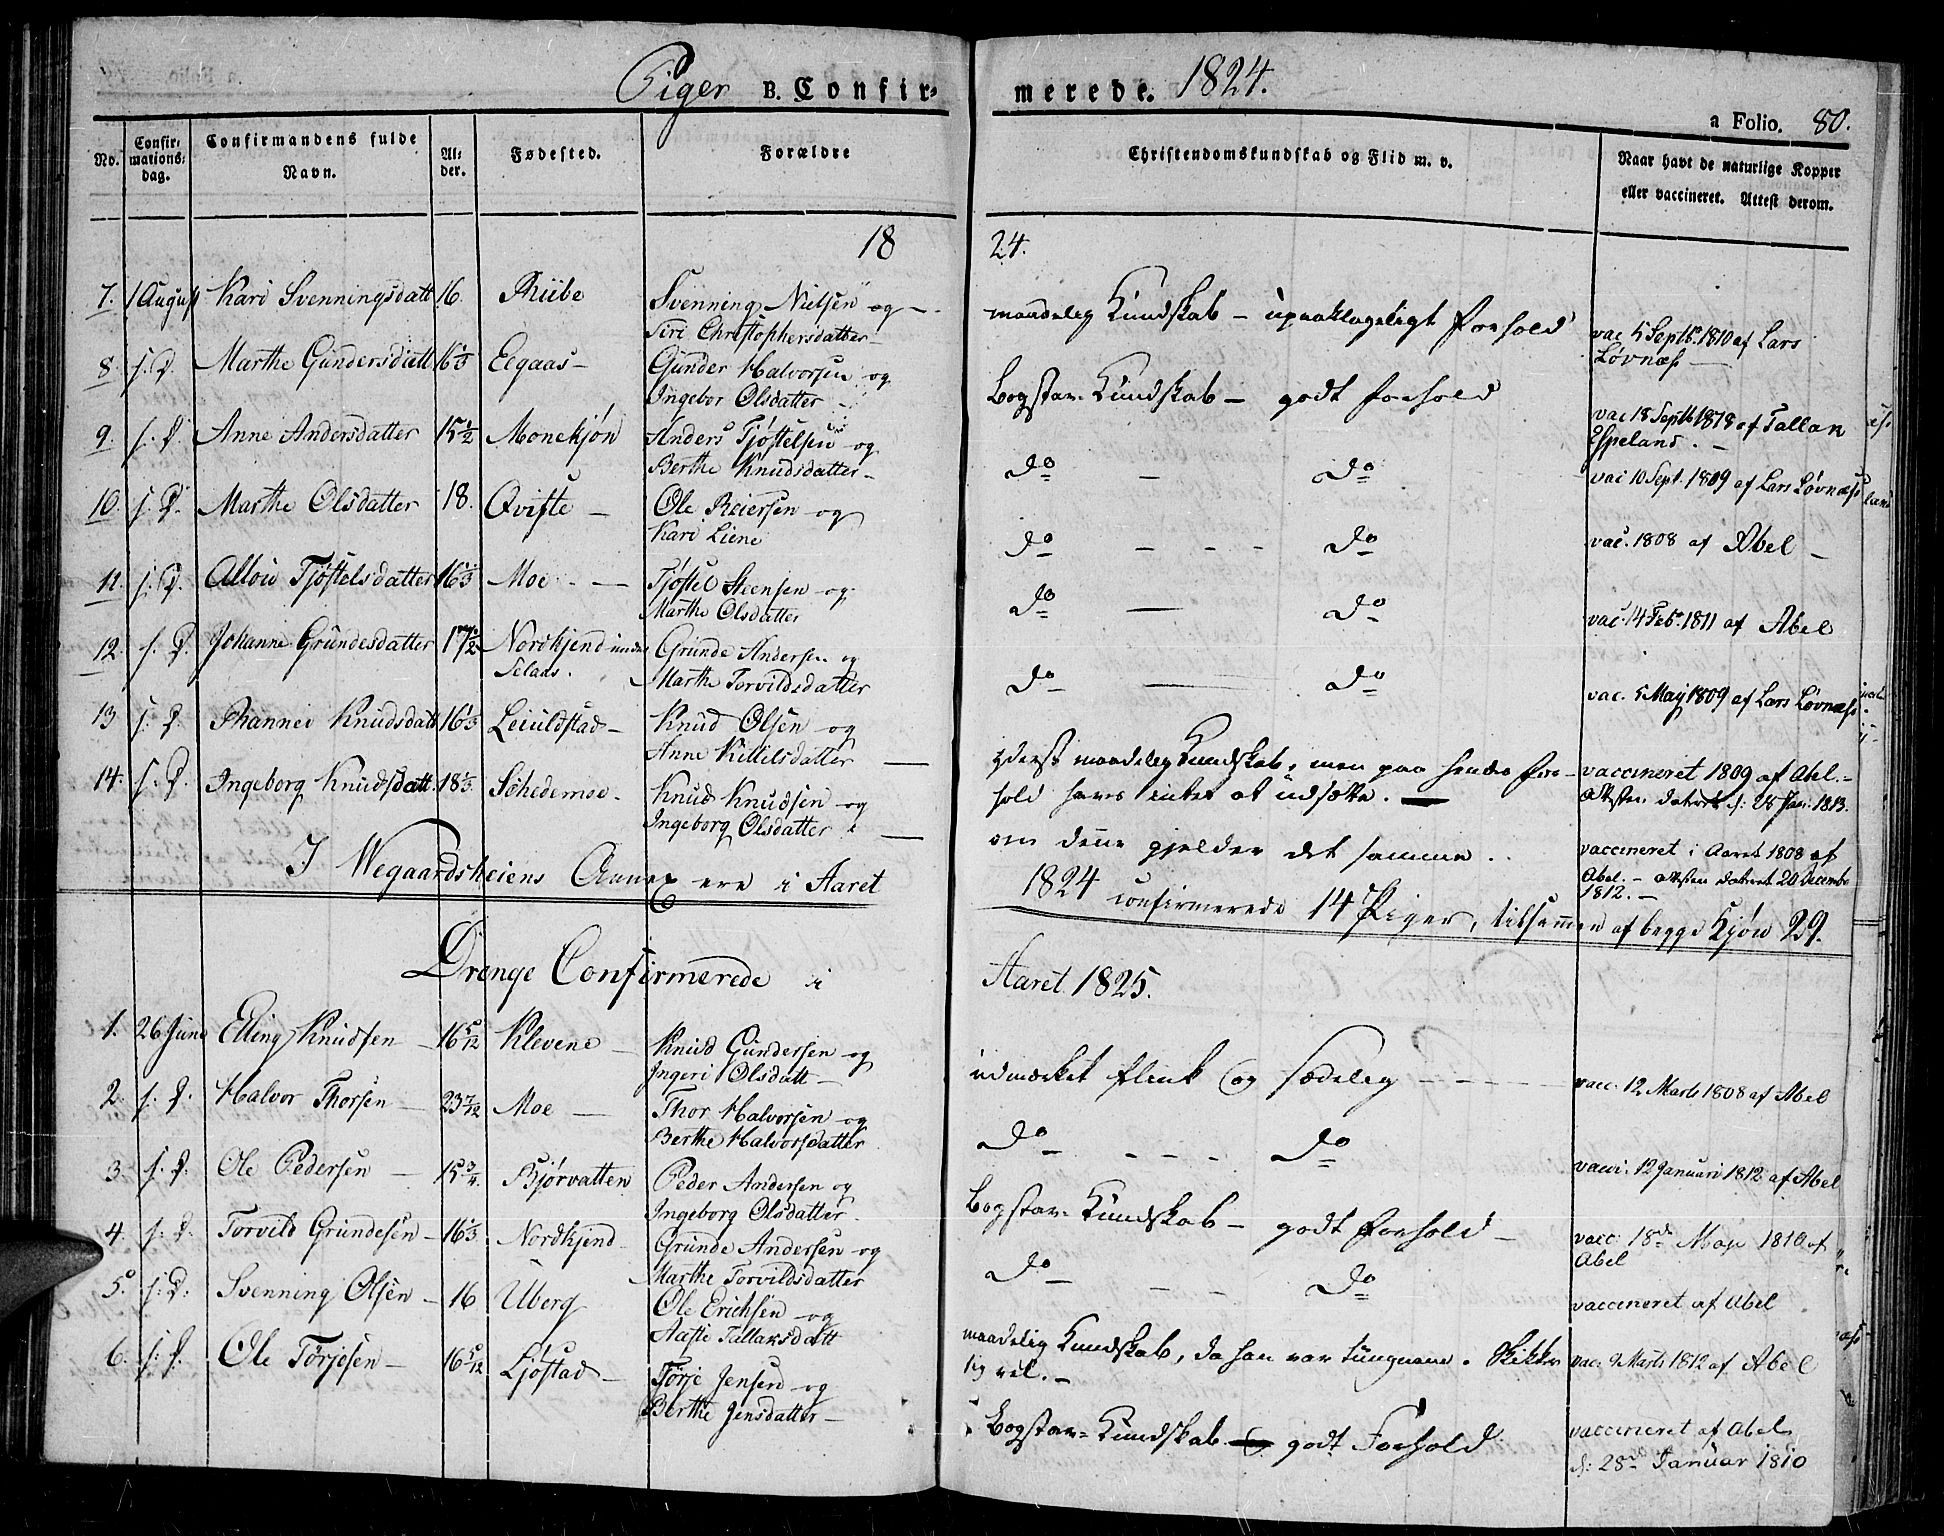 Piger B. Confir- merede. 1824.
a Folio. 80.
No. Confir-mations-dag. Confirmandens fulde Navn. Al-der. Fødested. Forældre Christendomskundskab og Flid m. v. Naar havt de naturlige Kopper eller vaccineret. Attest derom.
18 24.
7. 1 August Kari Svenningsdatt 16. Riibe Svenning Nielsen og
Siri Christophersdatter
maadelig Kundskab – upaaklageligt Forhold
vac 5 Septb. 1810 af Lars
Løvnæs
8. s. D. Marthe Gundersdatt 16 1/3 Eegaas – Gunder Halvorsen og
Ingebor Olsdatter
Bogstav-Kundskab – godt Forhold
vac 18 Septb 1818 af Tallak
Espeland. –
9. s. D. Anne Andersdatter 15 1/2 Monekjøn Anders Tjøstelsen og
Berthe Knudsdatter –
Do – Do
vac 10 Sept. 1809 af Lars Løvnæs
10. s. D. Marthe Olsdatter 18. Qvifte – Ole Reiersen og
Kari Liene
Do – – – Do
vac. 1808 af Abel –
11. s. D. Allow Tjøstelsdatter 16 1/3 Moe – Tjøstel Steensen og
Marthe Olsdatter
Do — Do
vac. 14 Feb. 1811 af Abel
12. s. D. Johanne Grundesdatter 17 1/2 Nordkjend under
Selaas. Grunde Andersen og
Marthe Torvildsdatter
Do — Do
vac. 5 May 1809 af Lars Løvnæs
13 s. D. Knudsdatt 16 1/3 Leiuldstad – Knud Olsen og
Anne Kittelsdatter —
yderst maadelig Kundskab, men paa hendes For-
hold haves intet at udsætte.
vaccineret 1809 af Abel. –
Attesten dateret d: 28 Jan: 1813.
14. s. D. Ingeborg Knudsdatt. 18 1/3 Schedemoe. Knud Knudsen og
Ingeborg Olsdatter —
om denne gjelder det samme.
vaccineret i Aaret 1808 af
Abel. – Attesten dateret 20 Decembr
1812. –
I Wegaardsheiens Annex ere i Aaret 1824 confirmerede 14 Piger, tilsammen af begge Kjøn 29.
Drenge Confirmerede i Aaret 1825.
1. 26 Juni Elling Knudsen – 16 5/12 Klevene – Knud Gundersen og
Ingeri Olsdatt –
udmærket flink og sædelig – – –
vacc. 12 Marts 1808 af Abel
2. s. D. Halvor Thorsen – 23 7/12 Moe – Thor Halvorsen og
Berthe Halvorsdatter
Do – – – Do
vacci. 12 Januari 1812 af Abel
3. s. D. Ole Pedersen – 15 3/4. Bjørvatten Peder Andersen og
Ingeborg Olsdatter.
Bogstav-Kundskab – godt Forhold –
vacc. 18de Maji 1810 af
Abel
4. s. D. Torvild Grundesen – 16 1/3 Nordkjend Grunde Andersen og
Marthe Torvildsdatter
Do – – – Do
vaccineret af Abel
5. s. D. Svenning Olsen – 16 Uberg Ole Erichsen og
Aaste Tallaksdatt
maadelig Kundskab, da han var tungnem. Skikker
sig vel. –
vac. 9 Marts 1812 af Abel
6. s. D. Ole Tørjesen – 16 5/12 Ljøstad – Tørje Jensen og
Berthe Jensdatter –
Bogstav-Kundskab godt Forhold
vaccineret af Abel
d: 28de Januar 1810